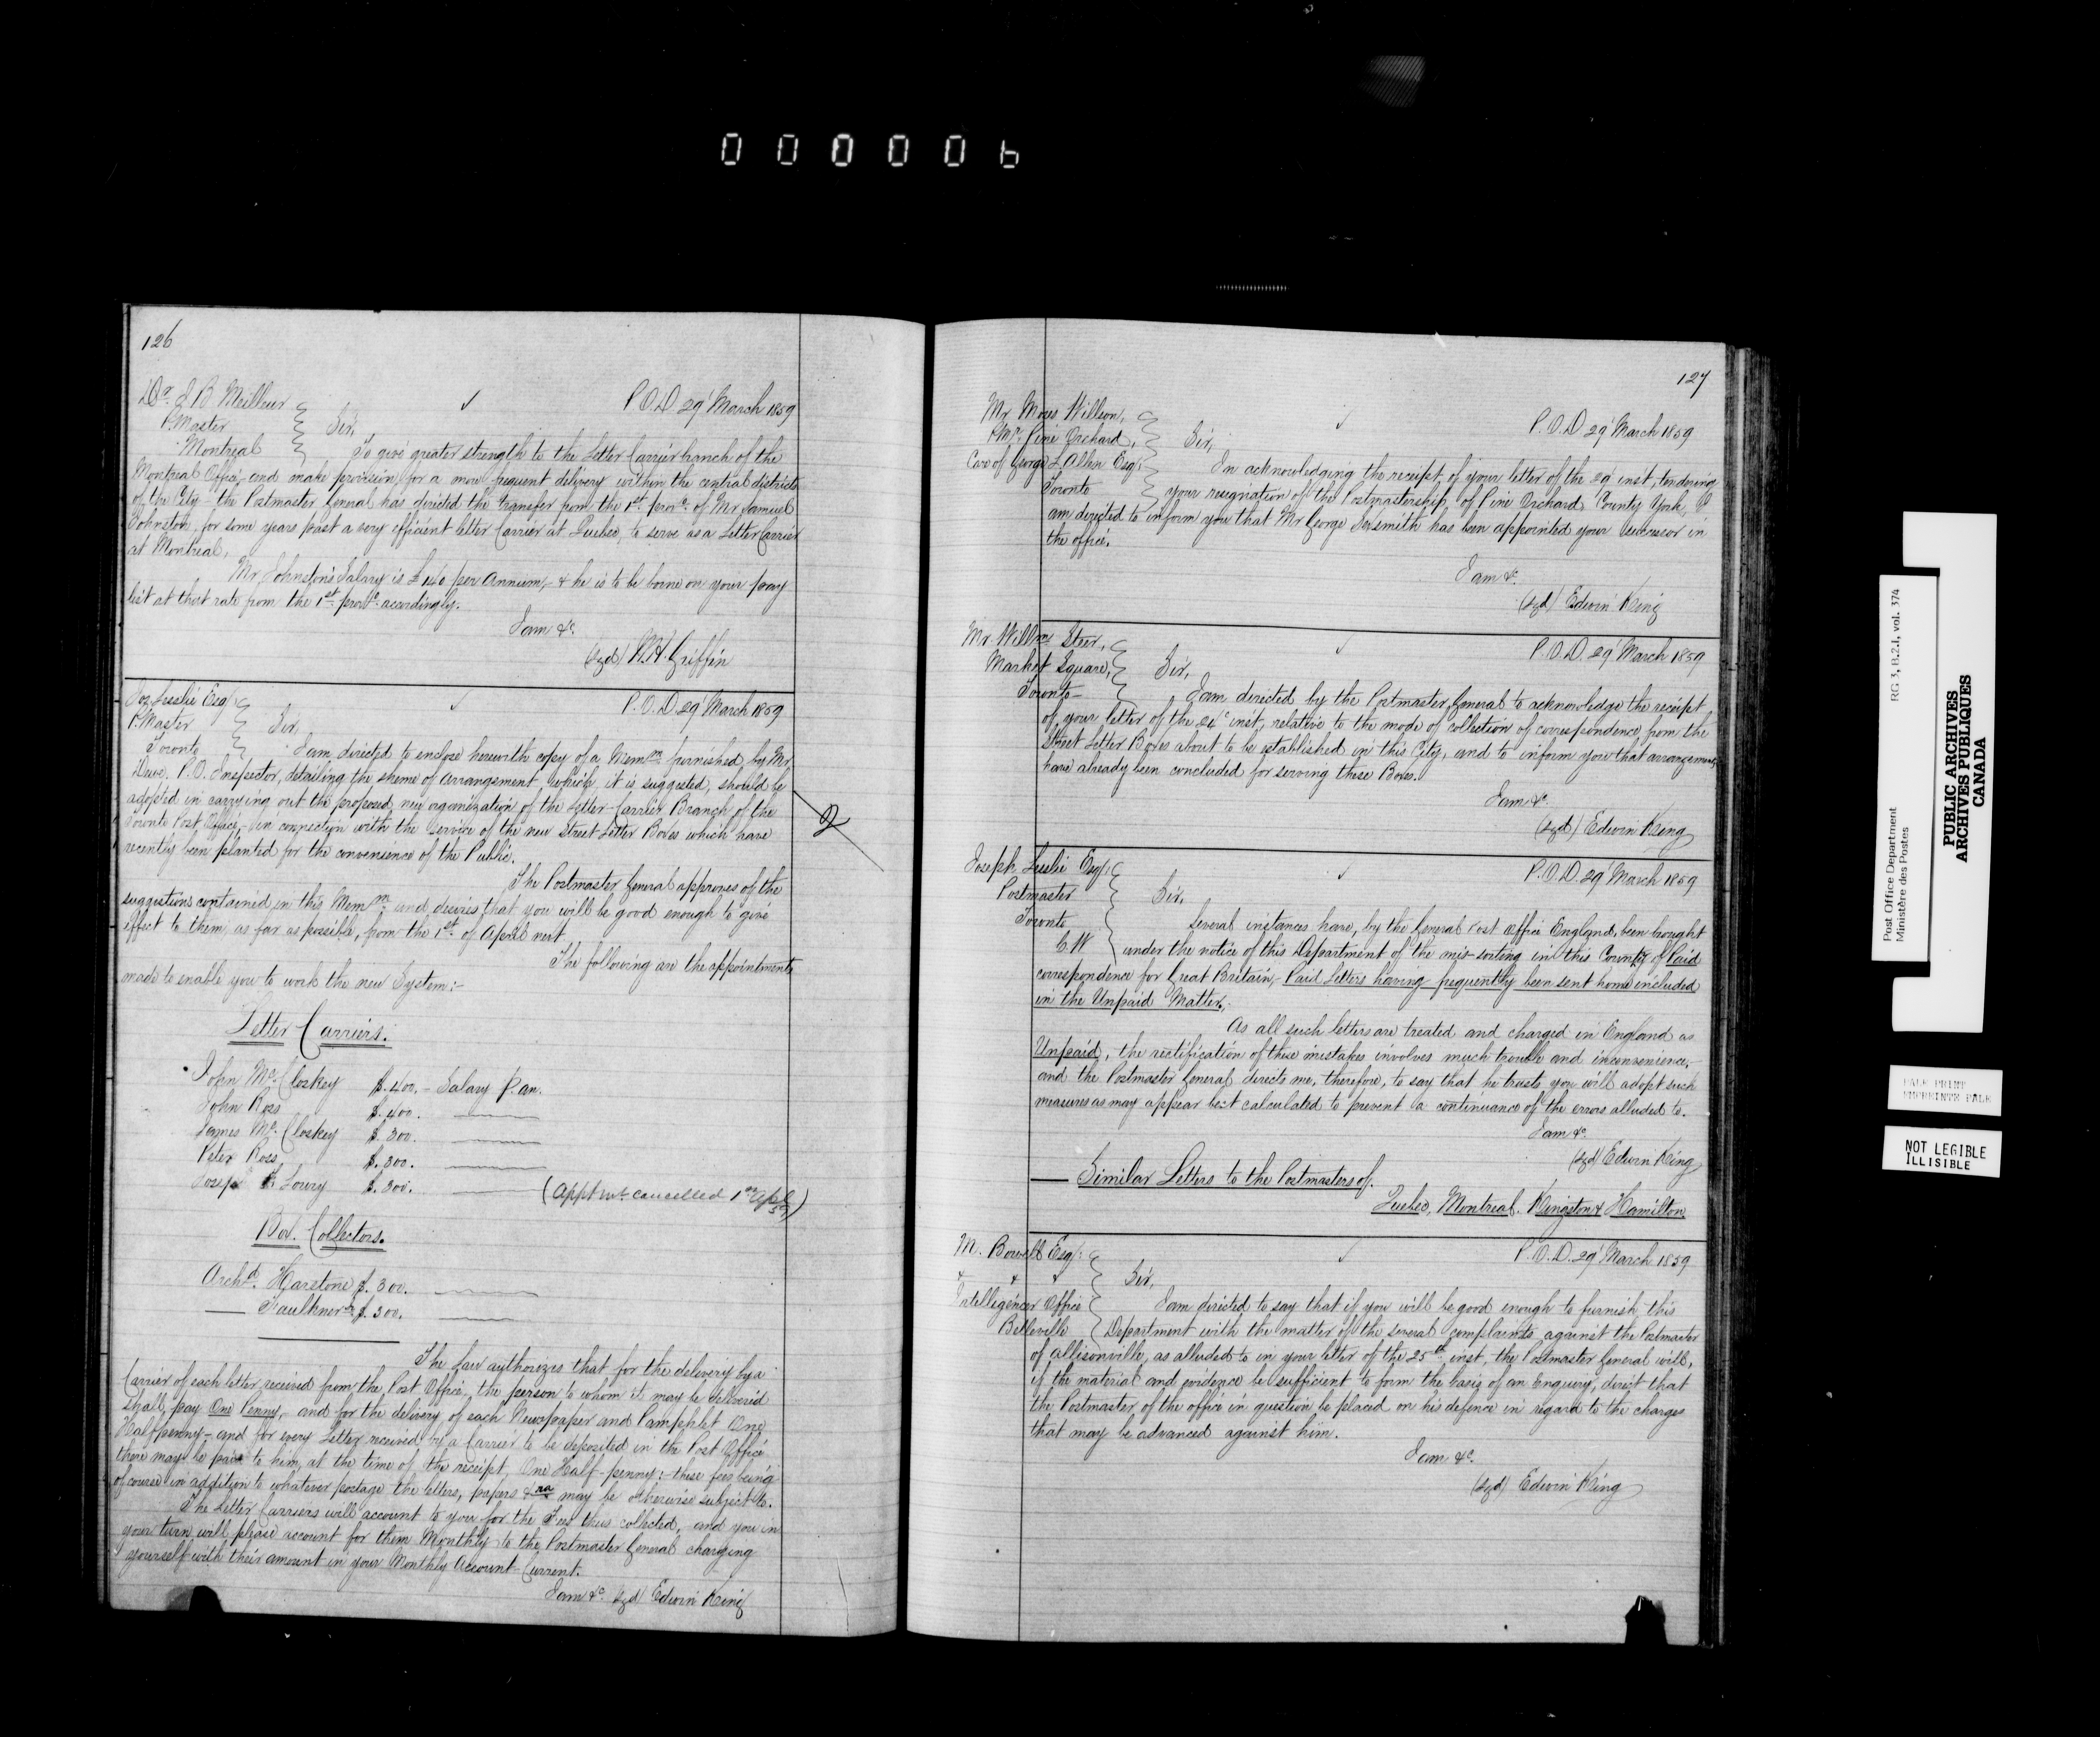 000006
126
Dr. J B Meilleur
P.Master
Montreal
Sir,
P.O.D 29 March 1859
To give greater strength to the Letter Carrier branch of the
Montreal Office, and make provision for a more frequent delivery within the central districts
of the City - the Postmaster General has directed the transfer from the 1st prox. of Mr Samuel
Johnston, for some years past a very efficient letter Carrier at Quebec, to serve as a Letter Carrier
at Montreal.
Mr Johnston's Salary is £140 per Annum, & he is to be borne on your pay
list at that rate from the 1st prox. accordingly.
I am &c.
(sgd) W.H. Griffin
Jos. Leslie Esq.
P.Master
Toronto
Sir,
P.O.D 29 March 1859
I am directed to enclose herewith copy of a Memm. furnished by Mr
Dewe, P.O. Inspector, detailing the sheme of arrangement which, it is suggested, should be
adopted in carrying out the proposed new organization of the Letter-Carrier Branch of the
Toronto Post Office, in connection with the service of the new Street Letter Boxes which have
recently been planted for the convenience of the Public.
2
The Postmaster General approves of the
suggestions contained in this Memm. and desires that you will be good enough to give
effect to them, as far as possible, from the 1st of April next.
The following are the appointments
made to enable you to work the new System:-
Letter Carriers.
John McCloskey $.400. - Salary P. an.
John Ross $.400.
James McCloskey $.300.
Peter Ross $.300.
Joseph Lowry $.300. (Appt mt cancelled 1st Apl 59)
Box. Collectors.
Archd. Harstone $.300.
Faulkner $.300.
The Law authorizes that for the delivery by a
Carrier of each letter received from the Post Office, the person to whom it may be delivered
Shall pay One Penny, and for the delivery of each Newspaper and Pamphlet One
Halfpenny - and for every Letter received by a Carrier to be deposited in the Post Office
there may be paid to him, at the time of the receipt, One Half-penny:- these fees being
of course in addition to whatever postage the letters, papers &ra may be otherwise subject to.
The Letter Carriers will account to you for the Fees thus collected, and you in
your turn will please account for them Monthly to the Postmaster General charging
yourself with their amount in your Monthly Account-Current.
I am &c. sgd/ Edwin King
127
Mr Moses Willson,
P.Mr. Pine Orchard,
Care of George L Allen Esq.
Toronto
Sir,
P.O.D 29 March 1859
In acknowledging the receipt, of your letter of the inst, tendering
your resignation of the Postmastership of Pine Orchard County York, I
am directed to inform you that Mr George Sexsmith has been appointed your Successor in
the office.
I am &c.
(sgd) Edwin King
Mr Willm Steer,
Market Square,
Toronto
Sir,
P.O.D. 29 March 1859
I am directed by the Postmaster General to acknowledge the receipt
of your letter of the 24 inst, relative to the mode of collection of correspondence from the
Street Letter Boxes about to be established in this City, and to inform you that arrangements
have already been concluded for serving these Boxes.
I am &c.
(sgd) Edwin King
Joseph Leslie Esq.
Postmaster
Toronto
C.W
Sir,
P.O.D. 29 March 1859
Several instances have, by the General Post Office England, been brought
under the notice of this Department of the mis-sorting in this Country of Paid
correspondence for Great Britain, - Paid Letters having frequently been sent home included
in the Unpaid Matter.
As all such letters are treated and charged in England as
Unpaid, the rectification of these mistakes involves much trouble and inconvenience,
and the Postmaster General directs me, therefore, to say that he trusts you will adopt such
measures as may appear best calculated to prevent a continuance of the errors alluded to.
I am &c.
(sgd) Edwin King
Similar Letters to the Postmasters of
Quebec, Montreal. Kingston & Hamilton.
M. Bowell Esq.
Intelligencer Office
Belleville
Sir,
P.O.D. 29 March 1859
I am directed to say that if you will be good enough to furnish this
Department with the matter of the several complaints against the Postmaster
of Allisonville, as alluded to in your letter of the 25th inst, the Postmaster General will,
if the material and evidence be sufficient to form the basis of an Enquiry, direct that
the Postmaster of the office in question be placed on his defence in regard to the charges
that may be advanced against him.
I am &c.
(sgd) Edwin King
Post Office Department
Ministère des Postes
RG 3, B.2.1, vol. 374
PUBLIC ARCHIVES
ARCHIVES PUBLIQUES
CANADA
PALE PRINT
IMPREINTE PALE
NOT LEGIBLE
ILLISIBLE